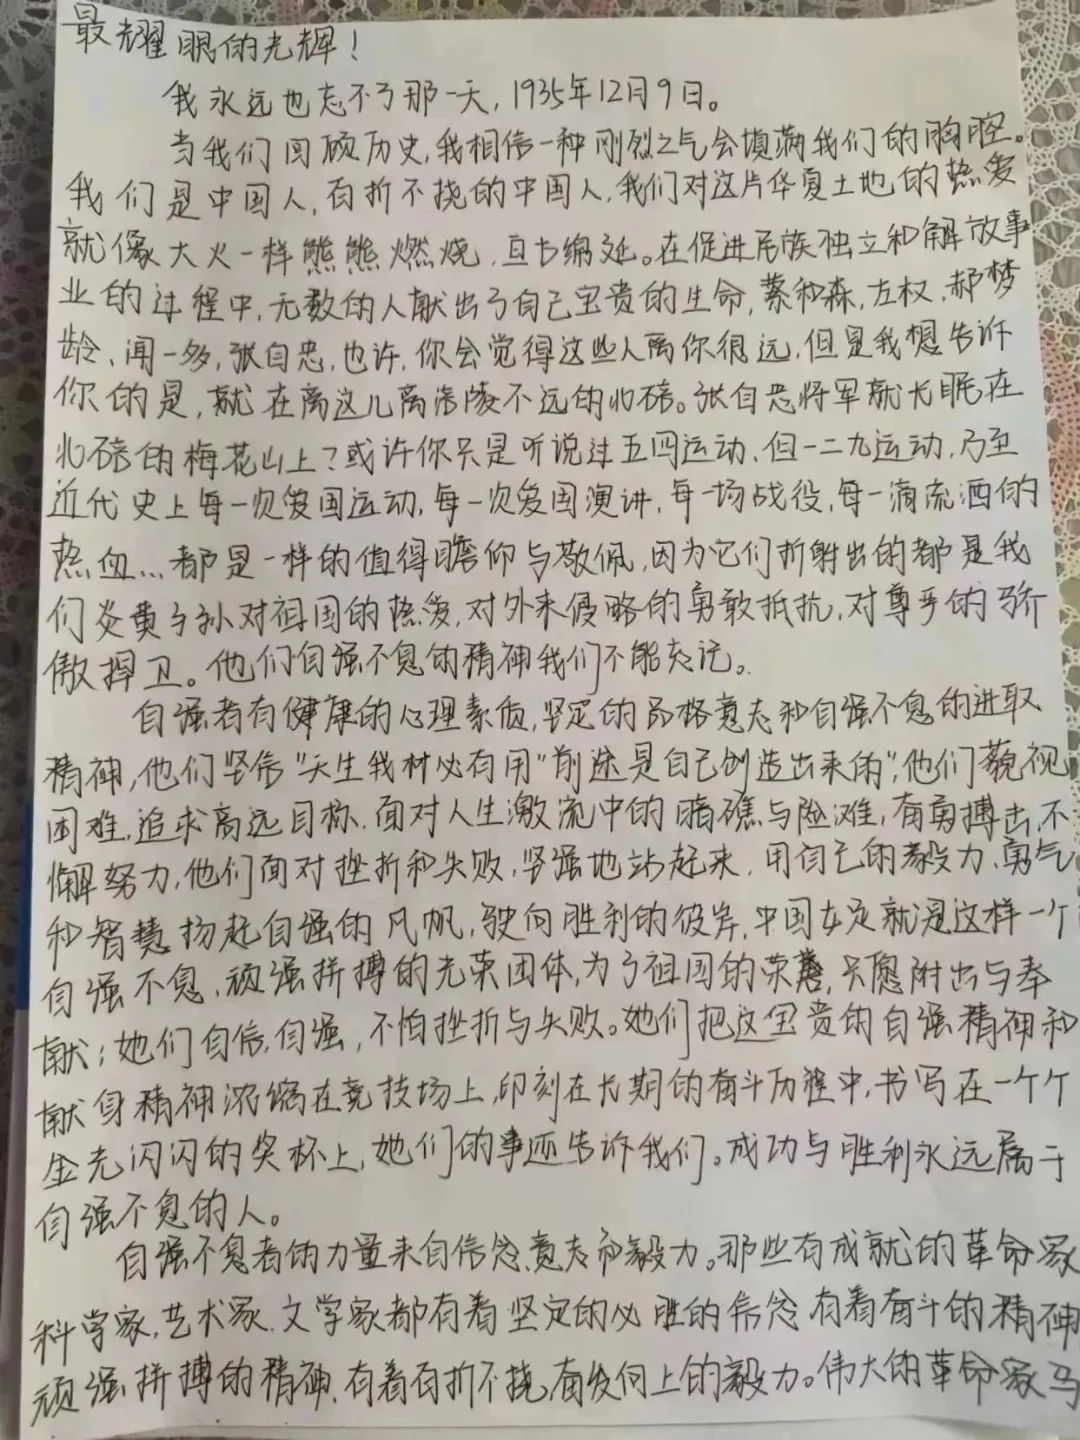 最耀眼的光辉！
我永远也忘不了那一天，1935年12月9日。
当我们回顾历史，我相信一种刚烈之气会填满我们的胸腔。
我们是中国人，百折不挠的中国人，我们对这片华夏土地的热爱
就像大火一样熊熊燃烧，亘古绵延。在促进民族独立和解放事
业的过程中，无数的人献出了自己宝贵的生命，蔡和森，左权，郝梦
龄、闻一多，张自忠，也许，你会觉得这些人离你很远，但是我想告诉
你的是，就在离这儿离涪陵不远的北碚。张自忠将军就长眠在
北碚的梅花山上？或许你只是听说过五四运动、但一二九运动，乃至
近代史上每一次爱国运动，每一次爱国演讲，每一场战役，每一滴流洒的
热血…都是一样的值得瞻仰与敬佩，因为它们折射出的都是我
们炎黄子孙对祖国的热爱，对外来侵略的勇敢抵抗，对尊严的骄
傲捍卫。他们自强不息的精神我们不能忘记。
自强者有健康的心理素质，坚定的品格意志和自强不息的进取
精神，他们坚信"天生我材必有用"前途是自己创造出来的"，他们藐视
困难，追求高远目标，面对人生激流中的暗礁与险滩，奋勇搏击，不
懈努力，他们面对挫折和失败，坚强地站起来，用自己的毅力、勇气
和智慧扬起自强的风帆，驶向胜利的彼岸，中国女足就是这样一个
自强不息、顽强拼搏的光荣团体，为了祖国的荣誉，只愿附出与奉
献；她们自信，自强，不怕挫折与失败。她们把这宝贵的自强精神和
献身精神浓缩在竞技场上，印刻在长期的奋斗历程中，书写在一个个
金光闪闪的奖杯上，她们的事迹告诉我们。成功与胜利永远属于
自强不息的人。
自强不息者的力量来自信念，意志和毅力。那些有成就的革命家
科学家，艺术家、文学家都有着坚定的必胜的信念有着奋斗的精神
顽强拼搏的精神，有着百折不挠，奋发向上的毅力。伟大的革命家马